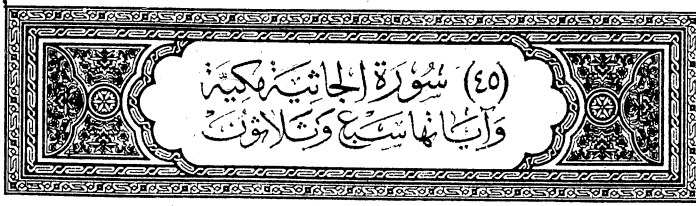 (٤٥) سُورَة الجَاثِيَة مَكيَّة
وَآيَاتهَا سَبْع وَثَلَاثُونْ